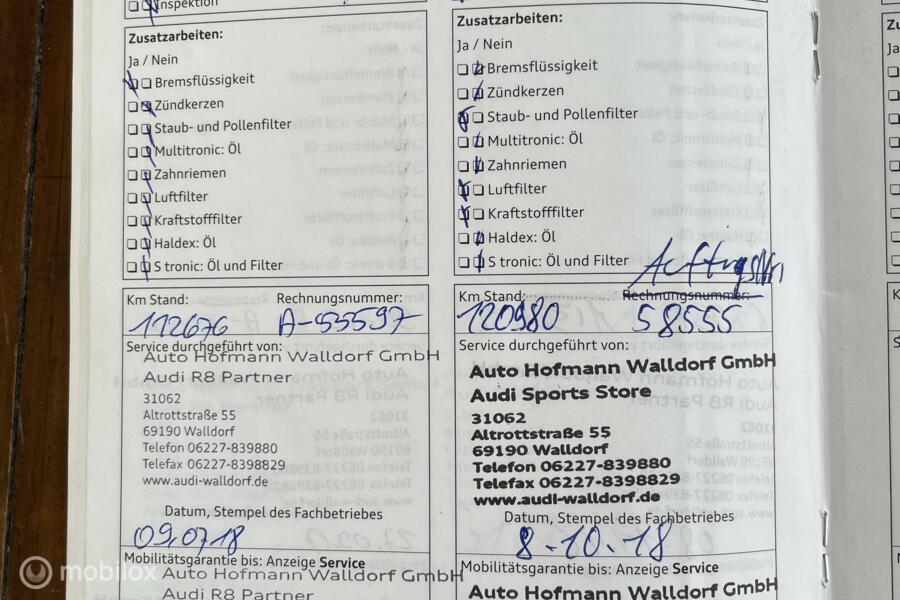 Inspektion
Zusatzarbeiten:
Ja / Nein
Bremsflüssigkeit
Zündkerzen
Staub- und Pollenfilter
Multitronic: Öl
Zahnriemen
Luftfilter
Kraftstofffilter
Haldex: Öl
S tronic: Öl und Filter
Km Stand: Rechnungsnummer:
112676 A-55597
Service durchgeführt von:
Auto Hofmann Walldorf GmbH
Audi R8 Partner
31062
Altrottstraße 55
69190 Walldorf
Telefon 06227-839880
Telefax 06227-8398829
www.audi-walldorf.de
Datum, Stempel des Fachbetriebes
09.07.18
Mobilitätsgarantie bis: Anzeige Service
Auto Hofmann Walldorf GmbH
Audi R8 Partner
Zusatzarbeiten:
Ja / Nein
Bremsflüssigkeit
Zündkerzen
Staub- und Pollenfilter
Multitronic: Öl
Zahnriemen
Luftfilter
Kraftstofffilter
Haldex: Öl
S tronic: Öl und Filter
Km Stand: Rechnungsnummer:
120980 58555
Service durchgeführt von:
Auto Hofmann Walldorf GmbH
Audi Sports Store
31062
Altrottstraße 55
69190 Walldorf
Telefon 06227-839880
Telefax 06227-8398829
www.audi-walldorf.de
Datum, Stempel des Fachbetriebes
8.10.18
Mobilitätsgarantie bis: Anzeige Service
Auto Hofmann Walldorf GmbH
mobilox